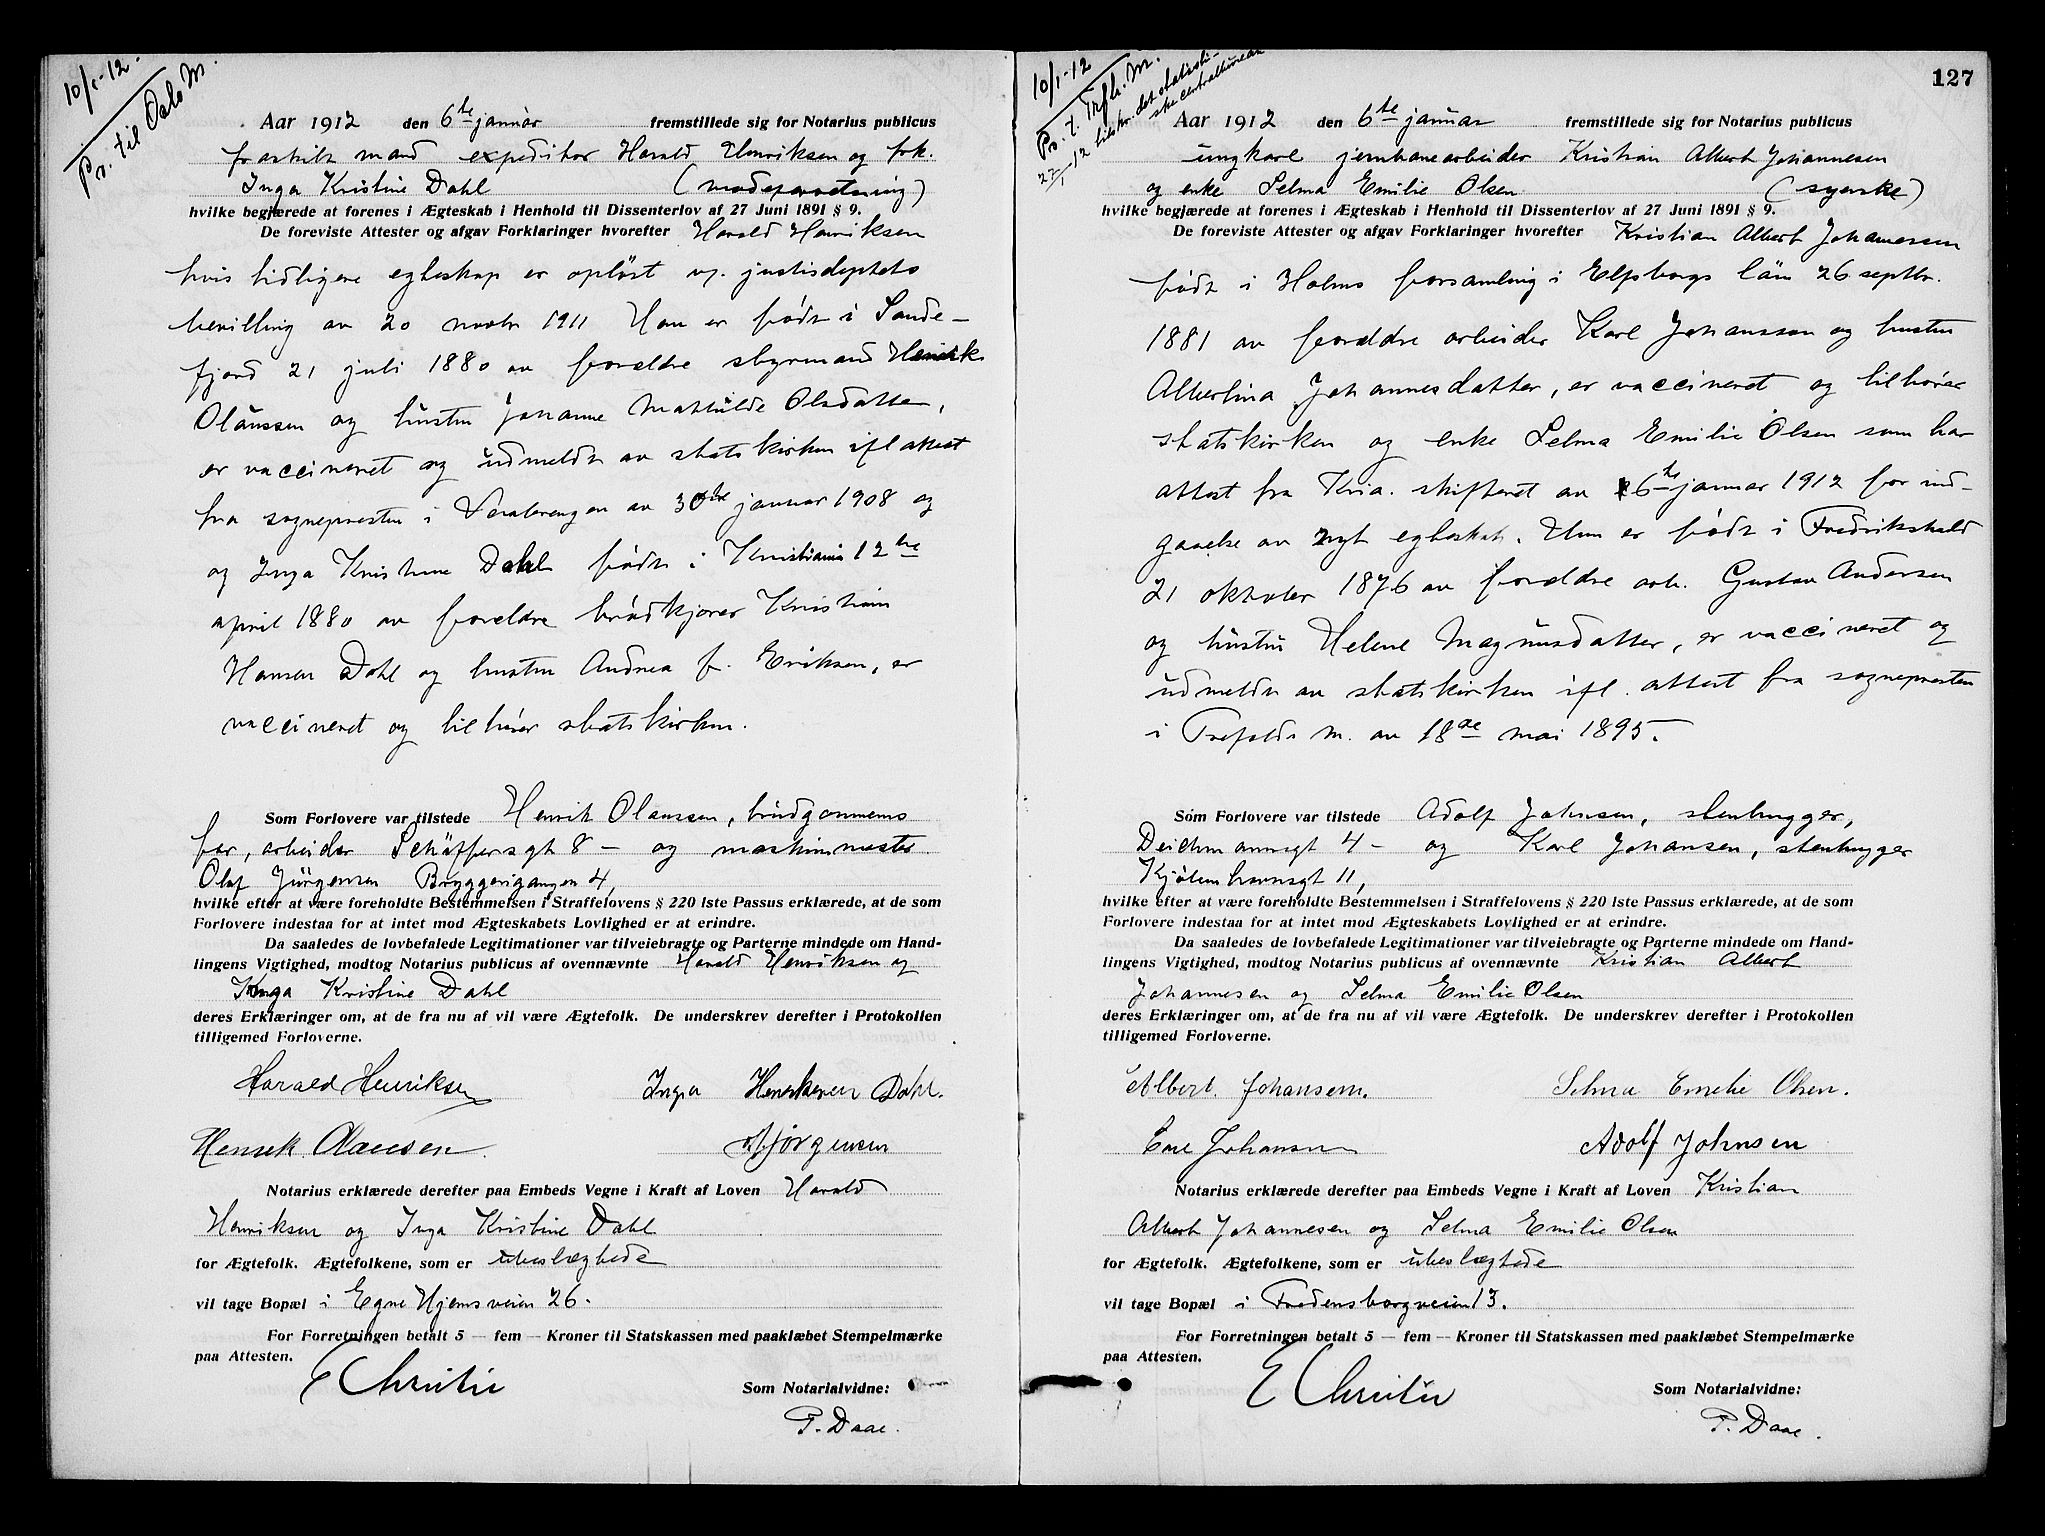 10/1-12.
Pr. til Oslo M.
Aar 1912 den 6te januar fremstillede sig for Notarius publicus
fraskilt mand expeditør Harald Henriksen og frk.
Inga Kristine Dahl (modeforretning)
hvilke begjærede at forenes i Ægteskab i Henhold til Dissenterlov af 27 Juni 1891 § 9.
De foreviste Attester og afgav Forklaringer hvorefter Harald Henriksen
hvis tidligere egteskap er opløst v. justisdeptets
bevilling av 20 novbr 1911 Han er født i Sande-
fjord 21 juli 1880 av forældre styrmand Henrik
Olaussen og hustru Johanne Mathilde Olsdatter,
er vaccineret og udmeldt av statskirken ifl attest
fra sognepresten i Vaalerengen av 30te januar 1908 og
og Inga Kristine Dahl født i Kristiania 12te
april 1880 av foreldre brødkjører Kristian
Hansen Dahl og hustru Andrea f. Eriksen, er
vaccineret og tilhører statskirken.
Som Forlovere var tilstede Henrik Olaussen, brudgommens
far, arbeider Schäffersgt 8 - og maskinmester
Olaf Jørgensen Bryggerigangen 4,
hvilke efter at være foreholdte Bestemmelsen i Straffelovens § 220 1ste Passus erklærede, at de som
Forlovere indestaa for at intet mod Ægteskabets Lovlighed er at erindre.
Da saaledes de lovbefalede Legitimationer var tilveiebragte og Parterne mindede om Hand-
lingens Vigtighed, modtog Notarius publicus af ovennævnte Harald Henriksen og
Inga Kristine Dahl
deres Erklæringer om, at de fra nu af vil være Ægtefolk. De underskrev derefter i Protokollen
tilligemed Forloverne.
Harald Henriksen Inga Dahl.
Henrik Olausen Jørgensen
Notarius erklærede derefter paa Embeds Vegne i Kraft af Loven Harald
Henriksen og Inga Kristine Dahl
for Ægtefolk. Ægtefolkene, som er ubeslægtede
vil tage Bopæl i Egne Hjemsveien 26.
For Forretningen betalt 5 — fem — Kroner til Statskassen med paaklæbet Stempelmærke
paa Attesten.
E Christie Som Notarialvidne:
P. Daae.
127
10/1-12
Pr. t. Trefh. M.
27/1-12 tilskr. det statisti-
ske centralbureau
Aar 1912 den 6te januar fremstillede sig for Notarius publicus
ungkarl jernbanearbeider Kristian Albert Johannesen
og enke Selma Emilie Olsen (syerske)
hvilke begjærede at forenes i Ægteskab i Henhold til Dissenterlov af 27 Juni 1891 § 9.
De foreviste Attester og afgav Forklaringer hvorefter Kristian Albert Johannesen
født i Holms forsamling i Elfsborgs län 26 septbr.
1881 av forældre arbeider Karl Johansson og hustru
Albertina Johannesdatter, er vaccineret og tilhører
statskirken og enke Selma Emilie Olsen som har
attest fra Kria. skifteret av 6te januar 1912 for ind-
gaaelse av nyt egteskab. Hun er født i Fredrikshald
21 oktober 1876 av forældre arb. Gustav Andersen
og hustru Helene Magnusdatter, er vaccineret og
udmeldt av statskirken ifl. attest fra sognepresten
i Trefoldh M. av 18de mai 1895.
Som Forlovere var tilstede Adolf Johnsen, stenhugger,
Deichmannsgt 4 - og Karl Johansen, stenhugger
Kjøbenhavnsgt 11,
hvilke efter at være foreholdte Bestemmelsen i Straffelovens § 220 1ste Passus erklærede, at de som
Forlovere indestaa for at intet mod Ægteskabets Lovlighed er at erindre.
Da saaledes de lovbefalede Legitimationer var tilveiebragte og Parterne mindede om Hand-
lingens Vigtighed, modtog Notarius publicus af ovennævnte Kristian Albert
Johannesen og Selma Emilie Olsen
deres Erklæringer om, at de fra nu af vil være Ægtefolk. De underskrev derefter i Protokollen
tilligemed Forloverne.
Albert Johansen. Selma Emelie Olsen.
Carl Johansen Adolf Johnsen
Notarius erklærede derefter paa Embeds Vegne i Kraft af Loven Kristian
Albert Johannesen og Selma Emilie Olsen
for Ægtefolk. Ægtefolkene, som er ubeslægtede
vil tage Bopæl i Fredensborgveien 13.
For Forretningen betalt 5 — fem — Kroner til Statskassen med paaklæbet Stempelmærke
paa Attesten.
E Christie Som Notarialvidne:
P. Daae.